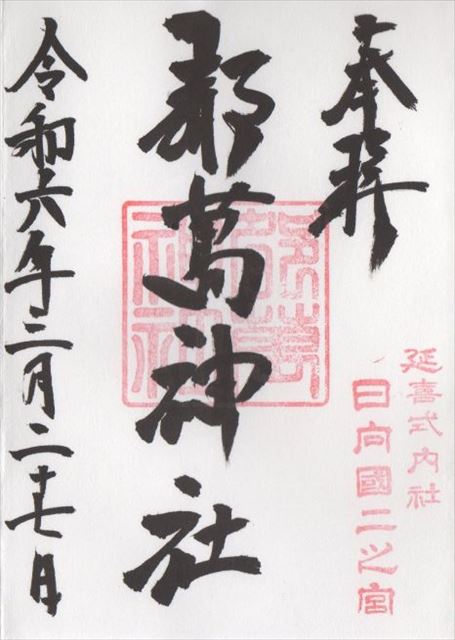 奉拝
延喜式内社
日向國二之宮
都萬神社
都萬神社
令和六年三月二十七日